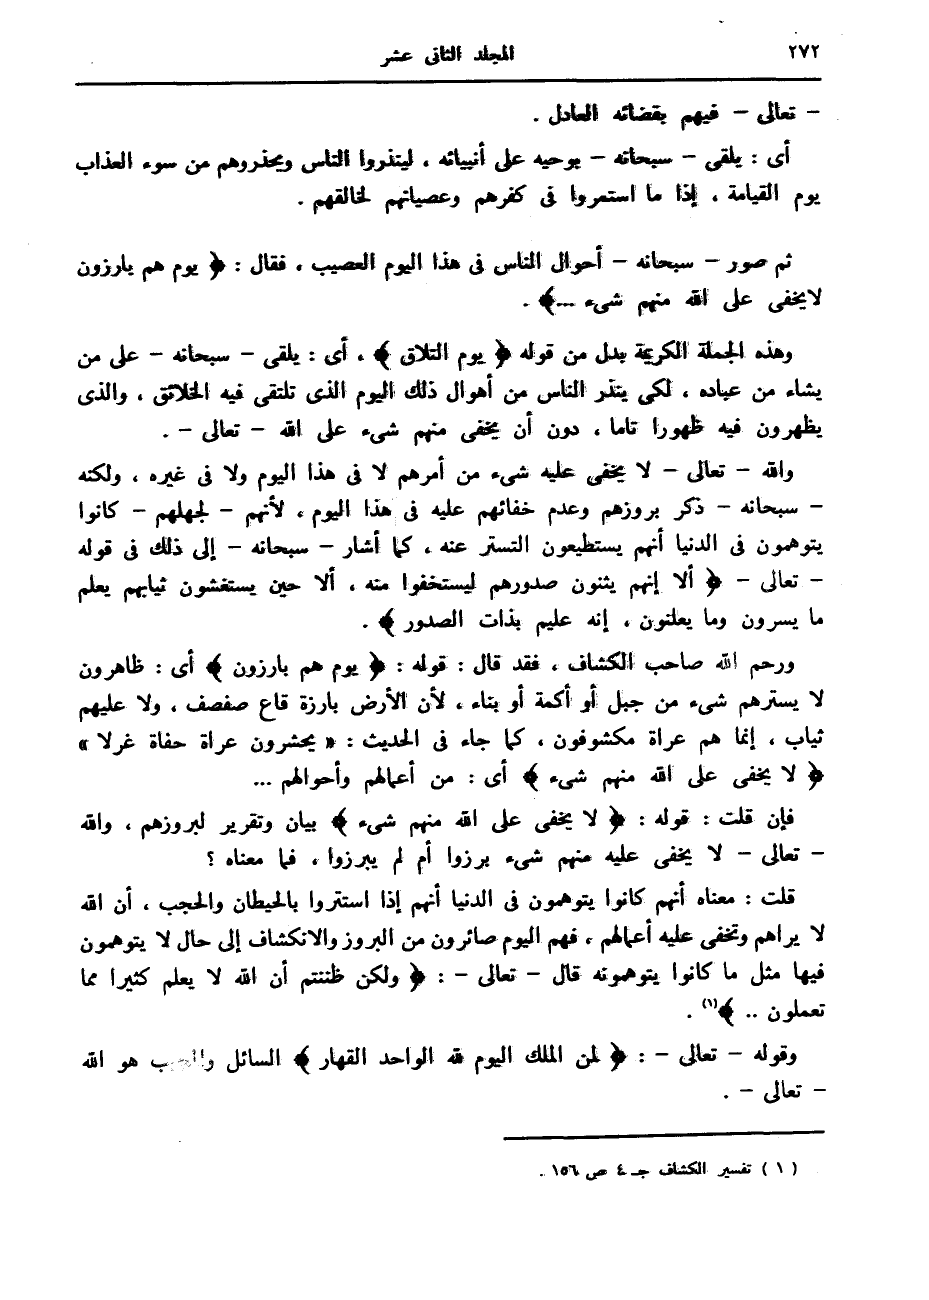 ٢٧٢
المجلد الثانى عشر
– تعالى – فيهم بقضائه العادل .
أى : يلقى – سبحانه – بوحيه على أنبيائه ، لينذروا الناس ويحذروهم من سوء العذاب
يوم القيامة ، إذا ما استمروا فى كفرهم وعصيانهم لخالقهم .
ثم صور – سبحانه – أحوال الناس فى هذا اليوم العصيب ، فقال : ﴿ يوم هم بارزون
لايخفى على الله منهم شىء ...﴾ .
وهذه الجملة الكريمة بدل من قوله ﴿ يوم التلاق ﴾ ، أى : يلقى – سبحانه – على من
يشاء من عباده ، لكى ينذر الناس من أهوال ذلك اليوم الذى تلتقى فيه الخلائق ، والذى
يظهرون فيه ظهورا تاما ، دون أن يخفى منهم شىء على الله – تعالى – .
والله – تعالى – لا يخفى عليه شىء من أمرهم لا فى هذا اليوم ولا فى غيره ، ولكنه
– سبحانه – ذكر بروزهم وعدم خفائهم عليه فى هذا اليوم ، لأنهم – لجهلهم – كانوا
يتوهمون فى الدنيا أنهم يستطيعون التستر عنه ، كما أشار – سبحانه – إلى ذلك فى قوله
– تعالى – ﴿ ألا إنهم يثنون صدورهم ليستخفوا منه ، ألا حين يستغشون ثيابهم يعلم
ما يسرون وما يعلنون ، إنه عليم بذات الصدور ﴾ .
ورحم الله صاحب الكشاف ، فقد قال : قوله : ﴿ يوم هم بارزون ﴾ أى : ظاهرون
لا يسترهم شىء من جبل أو أكمة أو بناء ، لأن الأرض بارزة قاع صفصف ، ولا عليهم
ثياب ، إنما هم عراة مكشوفون ، كما جاء فى الحديث : « يحشرون عراة حفاة غرلا »
﴿ لا يخفى على الله منهم شىء ﴾ أى : من أعمالهم وأحوالهم ...
فإن قلت : قوله : ﴿ لا يخفى على الله منهم شىء ﴾ بيان وتقرير لبروزهم ، والله
– تعالى – لا يخفى عليه منهم شىء برزوا أم لم يبرزوا ، فما معناه ؟
قلت : معناه أنهم كانوا يتوهمون فى الدنيا أنهم إذا استتروا بالحيطان والحجب ، أن الله
لا يراهم وتخفى عليه أعمالهم ، فهم اليوم صائرون من البروز والانكشاف إلى حال لا يتوهمون
فيها مثل ما كانوا يتوهمونه قال – تعالى – : ﴿ ولكن ظننتم أن الله لا يعلم كثيرا مما
تعملون .. ﴾(١) .
وقوله – تعالى – : ﴿ لمن الملك اليوم لله الواحد القهار ﴾ السائل هو الله
– تعالى – .
( ١ ) تفسير الكشاف جـ ٤ ص ١٥٦ .